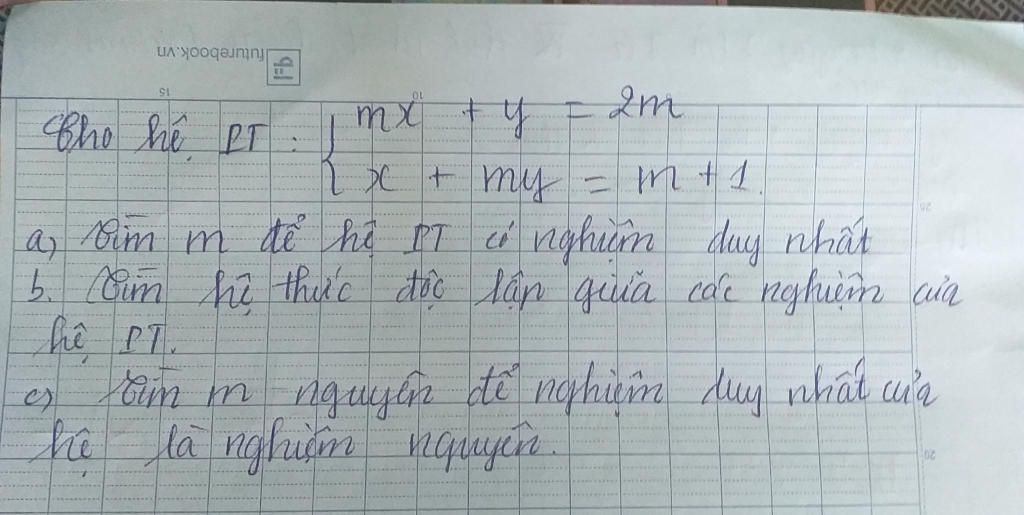 futurebook.vn
15
10
Cho hệ PT : { mx + y = 2m
x + my = m + 1.
a, Tìm m để hệ PT có nghiệm duy nhất
20
b. Tìm hệ thức độc lập giữa các nghiệm của
hệ PT.
c, Tìm m nguyên để nghiệm duy nhất của
hệ là nghiệm nguyên.
20